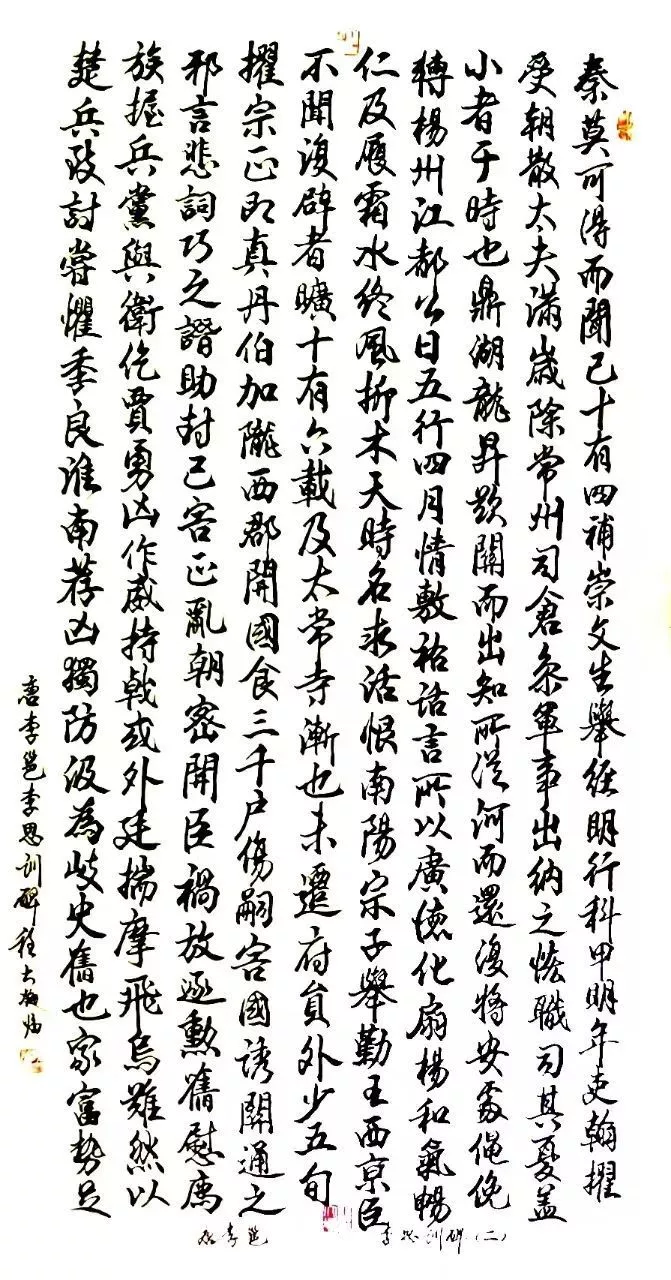 秦莫可得而聞已十有四補崇文生舉經明行科甲明年吏翰擢
受朝散太夫滿歲除常州司倉叅軍事出納之恡職司其憂盖
小者于時也鼎湖龍昇欵關而出知所從河而還復將安處俛
轉楊州江都公日五行四月情敷祐話言所以廣德化扇楊和氣暢
仁及履霜水終風折木天時名求活恨南陽宗子舉勤王西京臣
不聞復辟者曠十有六載及太常寺漸也未遷府貟外少五旬
擢宗正即真丹伯加隴西郡開國食三千户傷嗣害國誘關通之
邪言悲詞巧之譖助封己害正亂朝密開臣禍放逐勲舊慰薦
族握兵黨與衛仡賈勇凶作威持戟或外廷揣摩飛烏雖然以
楚兵致討嘗懼季良淮南荐凶獨防汲為岐史舊也家富勢足
唐李邕李思訓碑程大
李邕
李思訓碑（二）